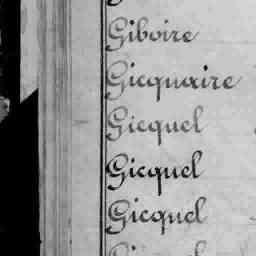 Giboire
Gicquaire
Gicquel
Gicquel
Gicquel